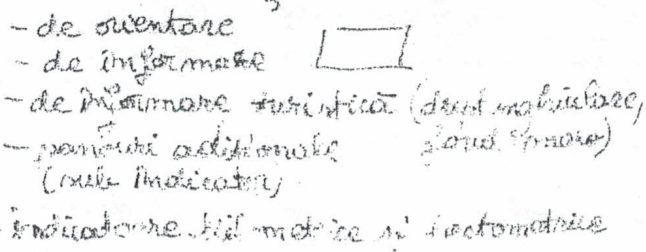 - de orientare
- de informare
- de informare turistică (dreptunghiulare,
- panouri adiționale fond maro)
(sub indicator)
indicatoare kilometrice și hectometrice